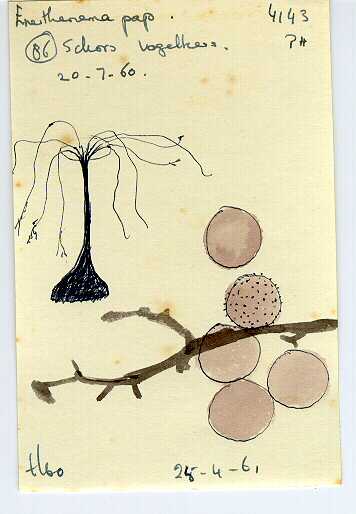 Enerthenema pap.
4143
86 Schors Vogelkers.
PH
20-7-60.
t 1/60
25-4-61